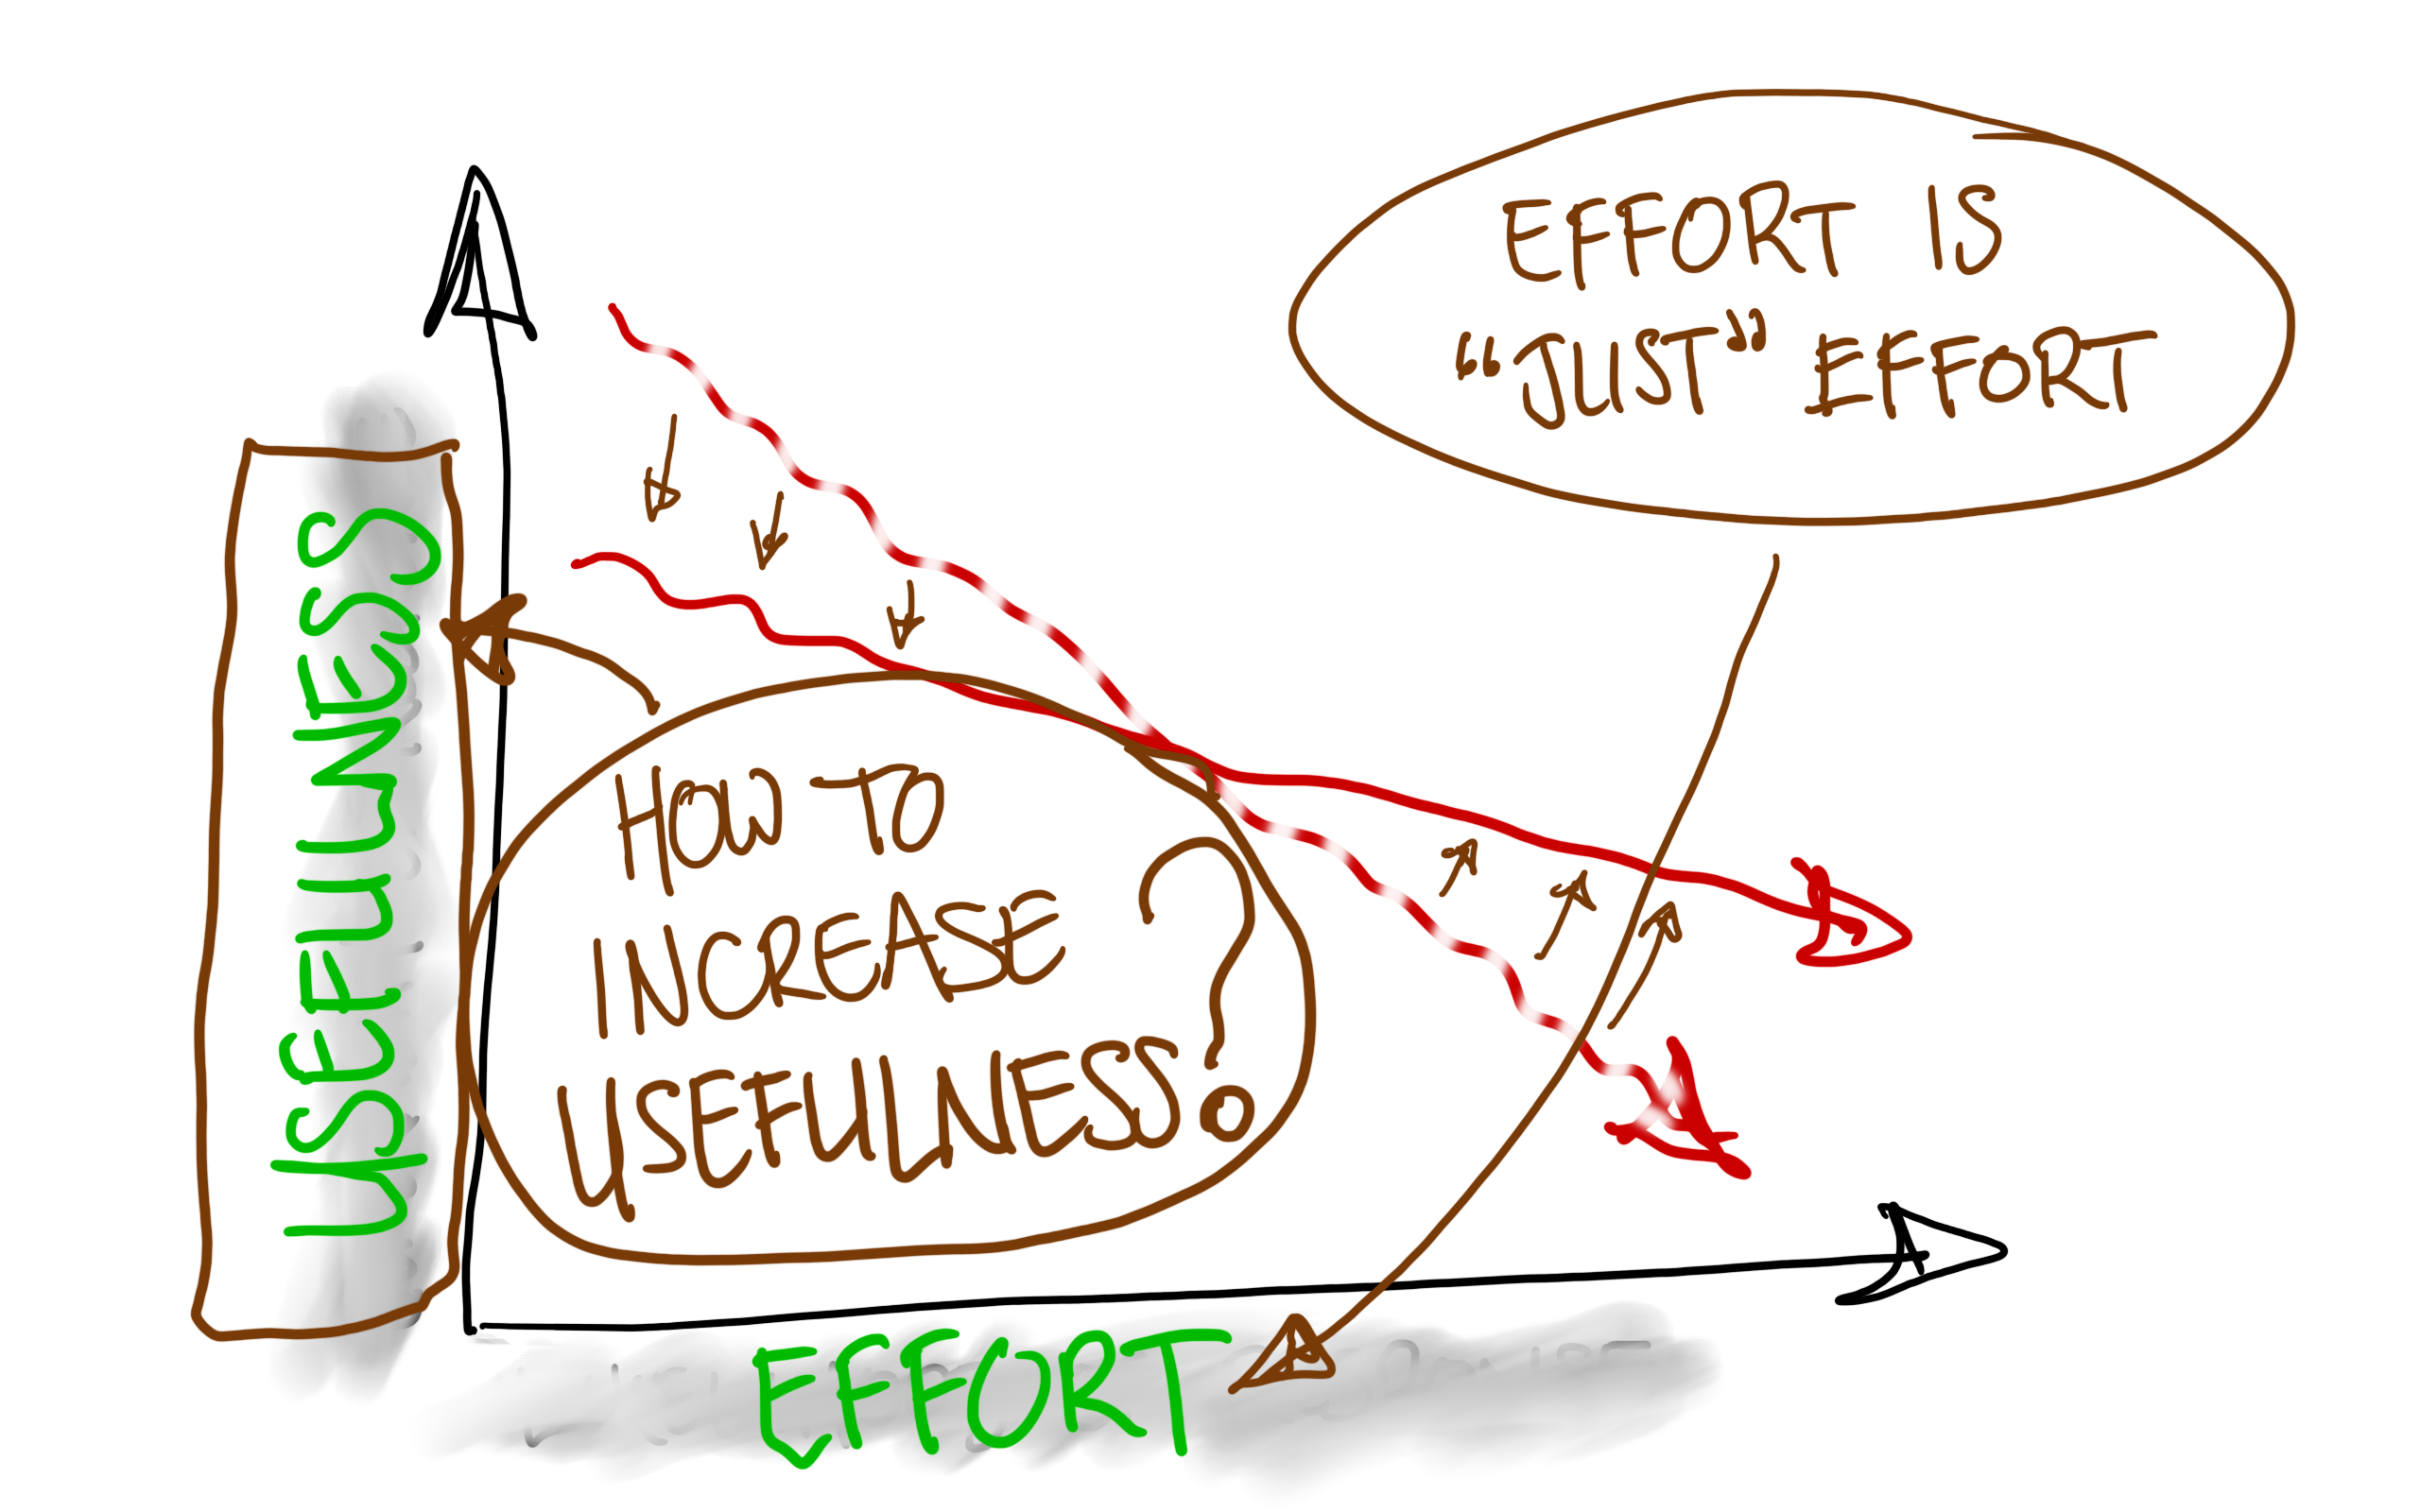 EFFORT IS
“JUST” EFFORT
USEFULNESS
HOW TO
INCREASE
USEFULNESS?
EFFORT